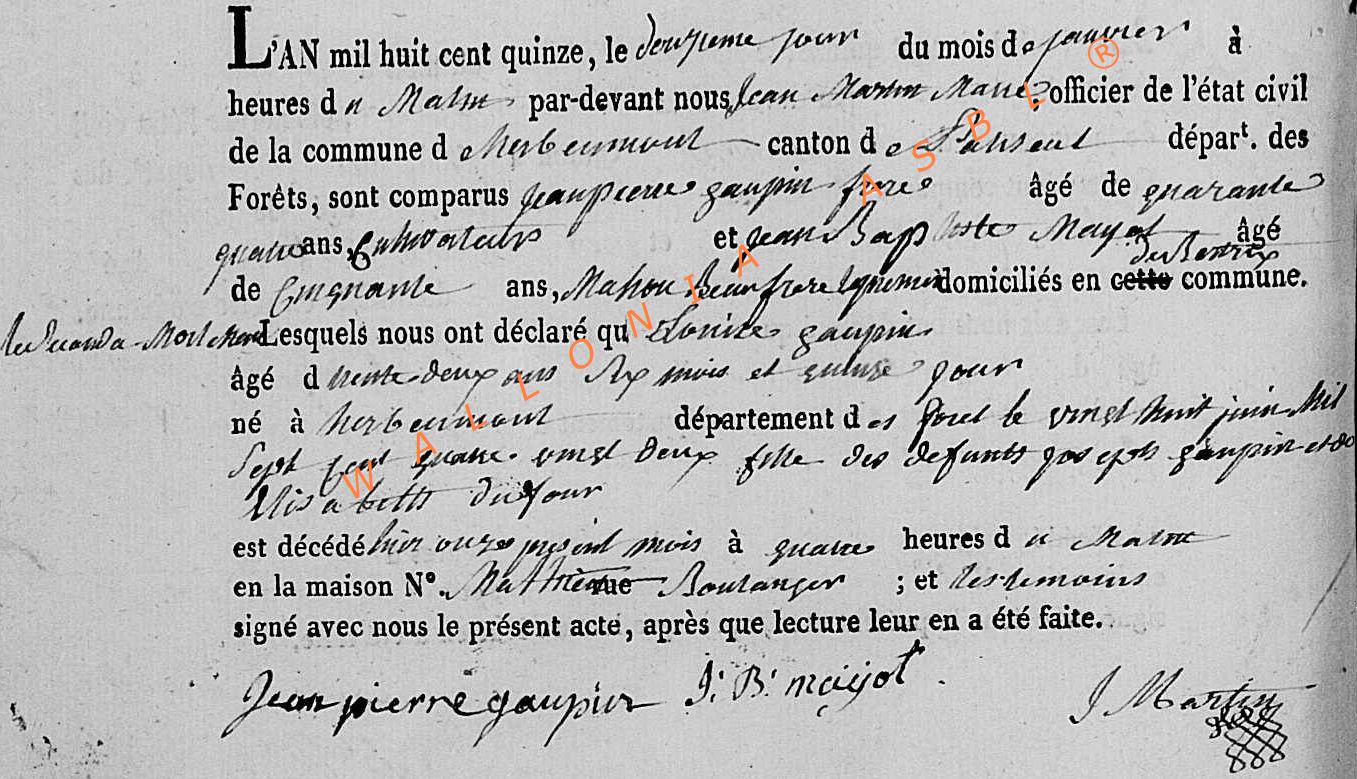 L'AN mil huit cent quinze, le douzieme jour du mois de janvier à
heures du Matin par-devant nous Jean Martin Maire officier de l'état civil
de la commune d herbeumont canton de départ. des
Forêts, sont comparus jean pierre gaupin frere âgé de quarante
quatre ans, Cultivateurs et jean Baptiste Mayot âgé
de Cinquante ans, Beaufrere domiciliés en cette commune.
Lesquels nous ont déclaré qu Louise gaupin
âgé d trente deux ans six mois et quinze jour
né à herbeumont département des foret le vingt huit juin Mil
Sept Cent quatre vingt Deux fille des defunts joseph gaupin et de
Elisabeth
est décédé hier onze present mois à quatre heures du Matin
en la maison N°. rue Boulanger ; et les temoins
signé avec nous le présent acte, après que lecture leur en a été faite.
Jean pierre gaupin J. B. mayot J Martin
WALLONIA ASBL ®